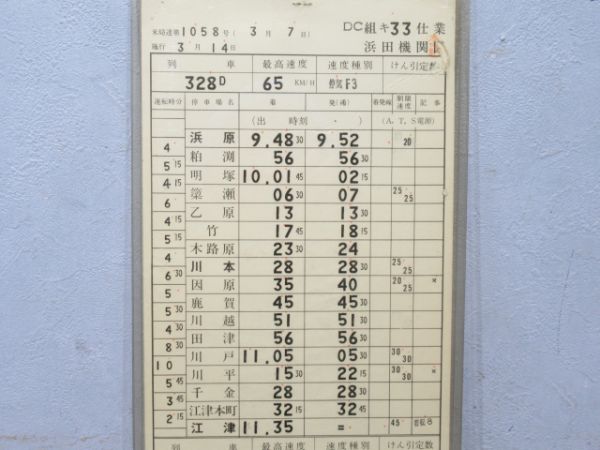 米局達第1058号( 3月 7日) DC組キ33仕業
施行 3月14日 浜田機関
列 車 最高速度 速度種別 けん引定数
328D 65 KM/H 停気F3
運転時分 停車場名 着 発(通) 着発線 制限速度 記事
(出 時刻 ・ ) (A,T,S電源)
浜原 9.48 30 9.52 20
4 粕渕 56 56 30
5 15 明塚 10.01 45 02 15
4 15 簗瀬 06 30 07 25 25
6 乙原 13 13 30
4 15 竹 17 45 18 15
5 15 木路原 23 30 24
4 川本 28 28 30 25 25
6 30 因原 35 40 20 25 ×
5 鹿賀 45 45 30
5 30 川越 51 51 30
5 田津 56 56 30
8 30 川戸 11.05 05 30 30 30
10 川平 15 30 22 15 30 30 ×
5 45 千金 28 28 30
3 45 江津本町 32 15 32 45
2 15 江津 11.35 = 45
列 車 最高速度 速度種別 けん引定数